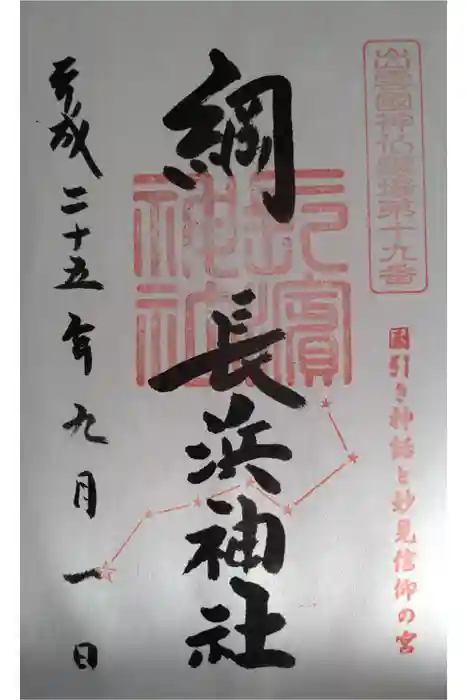 出雲國神仏霊場第十九番
国引き神話と妙見信仰の宮
綱
長浜神社
長濱神社
平成二十五年九月一日